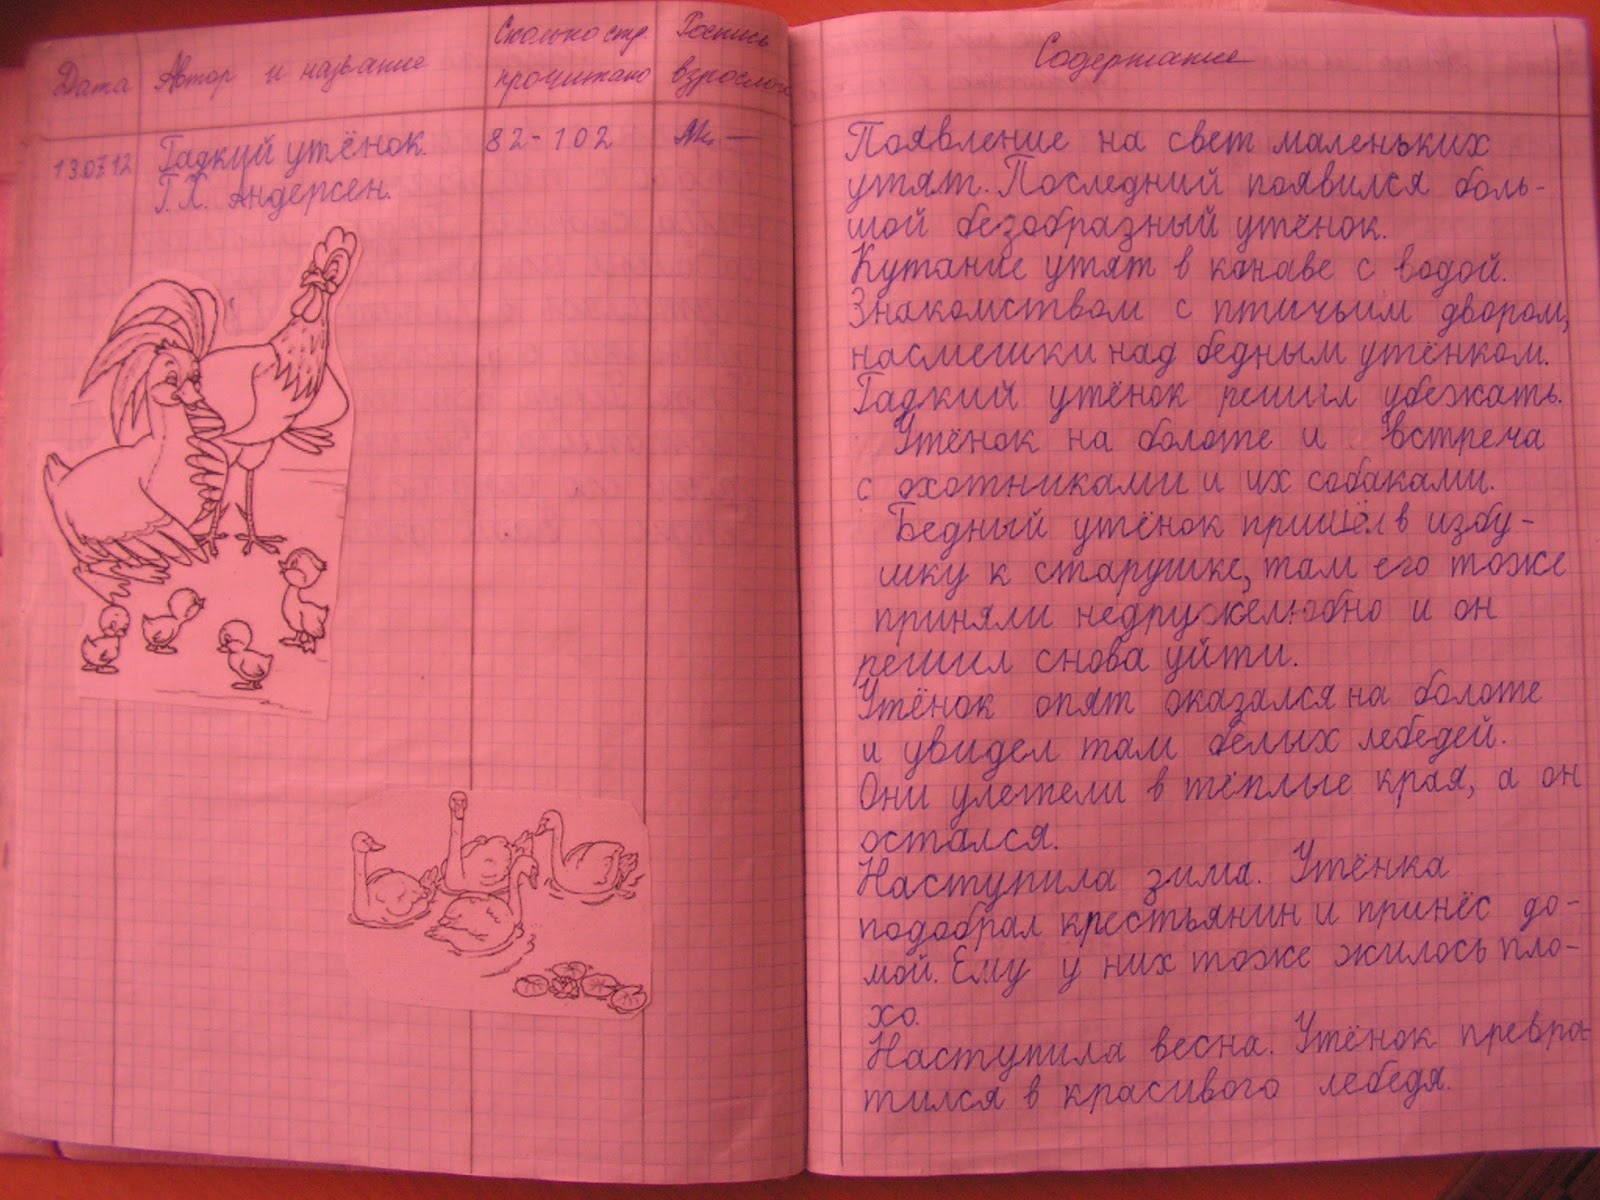 Дата
Автор и название
Сколько стр.
прочитано
Роспись
взрослого
13.07.12
Гадкий утёнок.
Г. Х. Андерсен.
82-102
Содержание
Появление на свет маленьких
утят. Последний появился боль-
шой безобразный утёнок.
Купание утят в канаве с водой.
Знакомством с птичьим двором,
насмешки над бедным утёнком.
Гадкий утёнок решил убежать.
Утёнок на болоте и встреча
с охотниками и их собаками.
Бедный утёнок пришёл в избу-
шку к старушке, там его тоже
приняли недружелюбно и он
решил снова уйти.
Утёнок опят оказался на болоте
и увидел там белых лебедей.
Они улетели в тёплые края, а он
остался.
Наступила зима. Утёнка
подобрал крестьянин и принёс до-
мой. Ему у них тоже жилось пло-
хо.
Наступила весна. Утёнок превра-
тился в красивого лебедя.